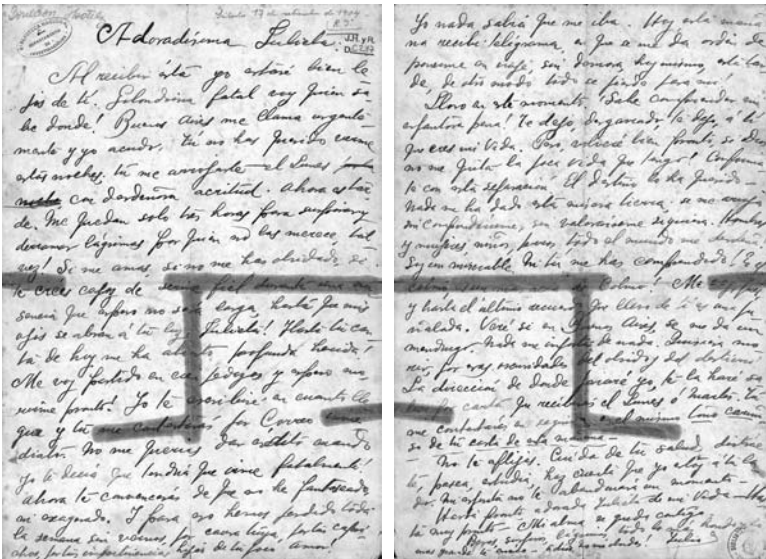 Adoradísima Julieta.
Al recibir ésta yo estaré bien le
jos de tí. Golondrina fatal voy quien sa-
be donde! Buenos Aires me llama urgente
mente y yo acudo. Tú no has querido verme
estas noches. tú me arrojaste el Lunes
con desdeñosa acritud. Ahora es tar
de. Me quedan solo tres horas para suspirar y
derramar lágrimas por quien no las merece tal
vez! Si me amas, si no me has olvidado, si
te crees capaz de serme fiel durante una au
sencia que espero no será larga, hasta que mis
ojos se abran á tu luz Julieta! Hasta tu car
ta de hoy me ha abierto profunda herida!
Me voy partido en cien pedazos y espero
verme pronto! Yo te escribiré en cuanto lle
gue y tú me contestarás por Correo inme
diato. No me querías dar crédito cuando
yo te decía que tendría que irme fatalmente!
ahora te convencerás de que no he fantaseado
ni exagerado. Y para eso hemos perdido toda
la semana sin vernos, por causa tuya, por tus capri
chos, por tus impertinencias hijas de tu poco amor!
Yo nada sabía que me iba. Hoy esta maña
na recibí telégrama, en que se me da orden de
ponerme en viaje, sin demora, hoy mismo, esta tar
de, de otro modo todo se pierde para mí.
Lloro en este momento. Sabe comprender mi
espantosa pena! Te dejo, desgarrado, te dejo, á tí
que eres mi vida. Pero, volveré bien pronto, si Dios
no me quita la poca vida que tengo! Conforma
te con esta separación! El destino lo ha querido -
Nada me ha dado esta misera tierra, se me arroja
sin compadecerme, sin valorárseme siquiera. Hombres
y mujeres, niños, pues todo el mundo me desdeña.
Soy un miserable. Ni tú me has comprendido!
Colmo! Me
y hasta el último recuerdo que llevo de tí es una pu
ñalada. Veré si en Buenos Aires, se me da un
mendrugo. Nada me importa de nada. Quisiera mo
rir, por esas oscuridades del olvido y del destierro.
La dirección de donde pararé yo, te la haré sa
ber por carta que recibirás el Lunes ó Martes. Tú
me contestarás en seguida en el mismo tono cariño
so de tu carta de esta mañana -
No te aflijas. Cuida de tu salud,
te, pasea, estudia, haz cuenta que yo estoy á tu la
do. Mi espíritu no te abandonará un momento -
Hasta pronto adorada Julieta de mi Vida -
ta muy pronto - Mi alma se queda contigo.
Besos, suspiros, lágrimas, todo lo más hondo, lo
mas grande te envío - Adios Julio